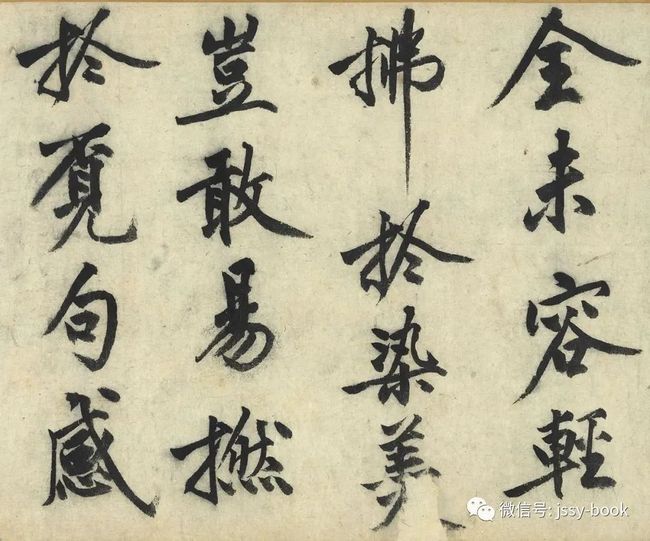 全未容輕
拂於染羹
豈敢易撚
於覓句感
微信号: jssy-book